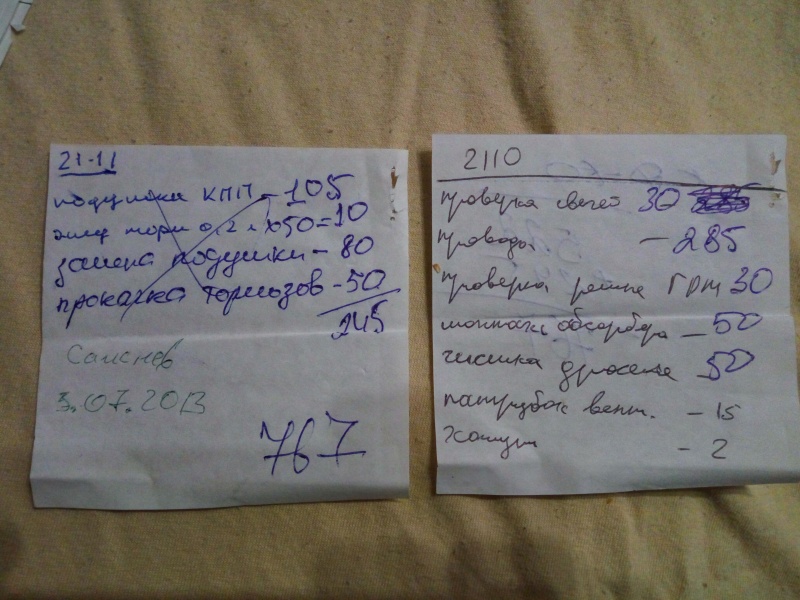 21-11
подушка КПП - 105
жид торм 0,2 л x50=10
замена подушки - 80
прокачка тормозов - 50
245
3.07.2013
767
2110
проверка свечей 30
провода - 285
проверка ремня ГРМ 30
монтаж абсорбера - 50
чистка дросселя 50
патрубок вент. - 15
Хомут - 2